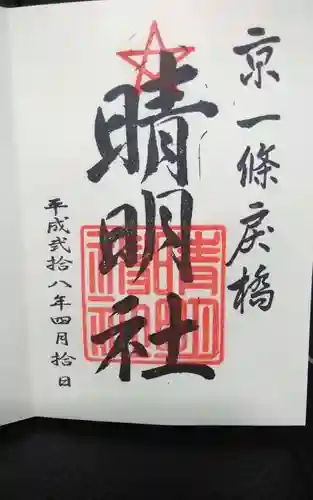 京一條戻橋
晴明社
平成弐拾八年四月拾日
晴明神社